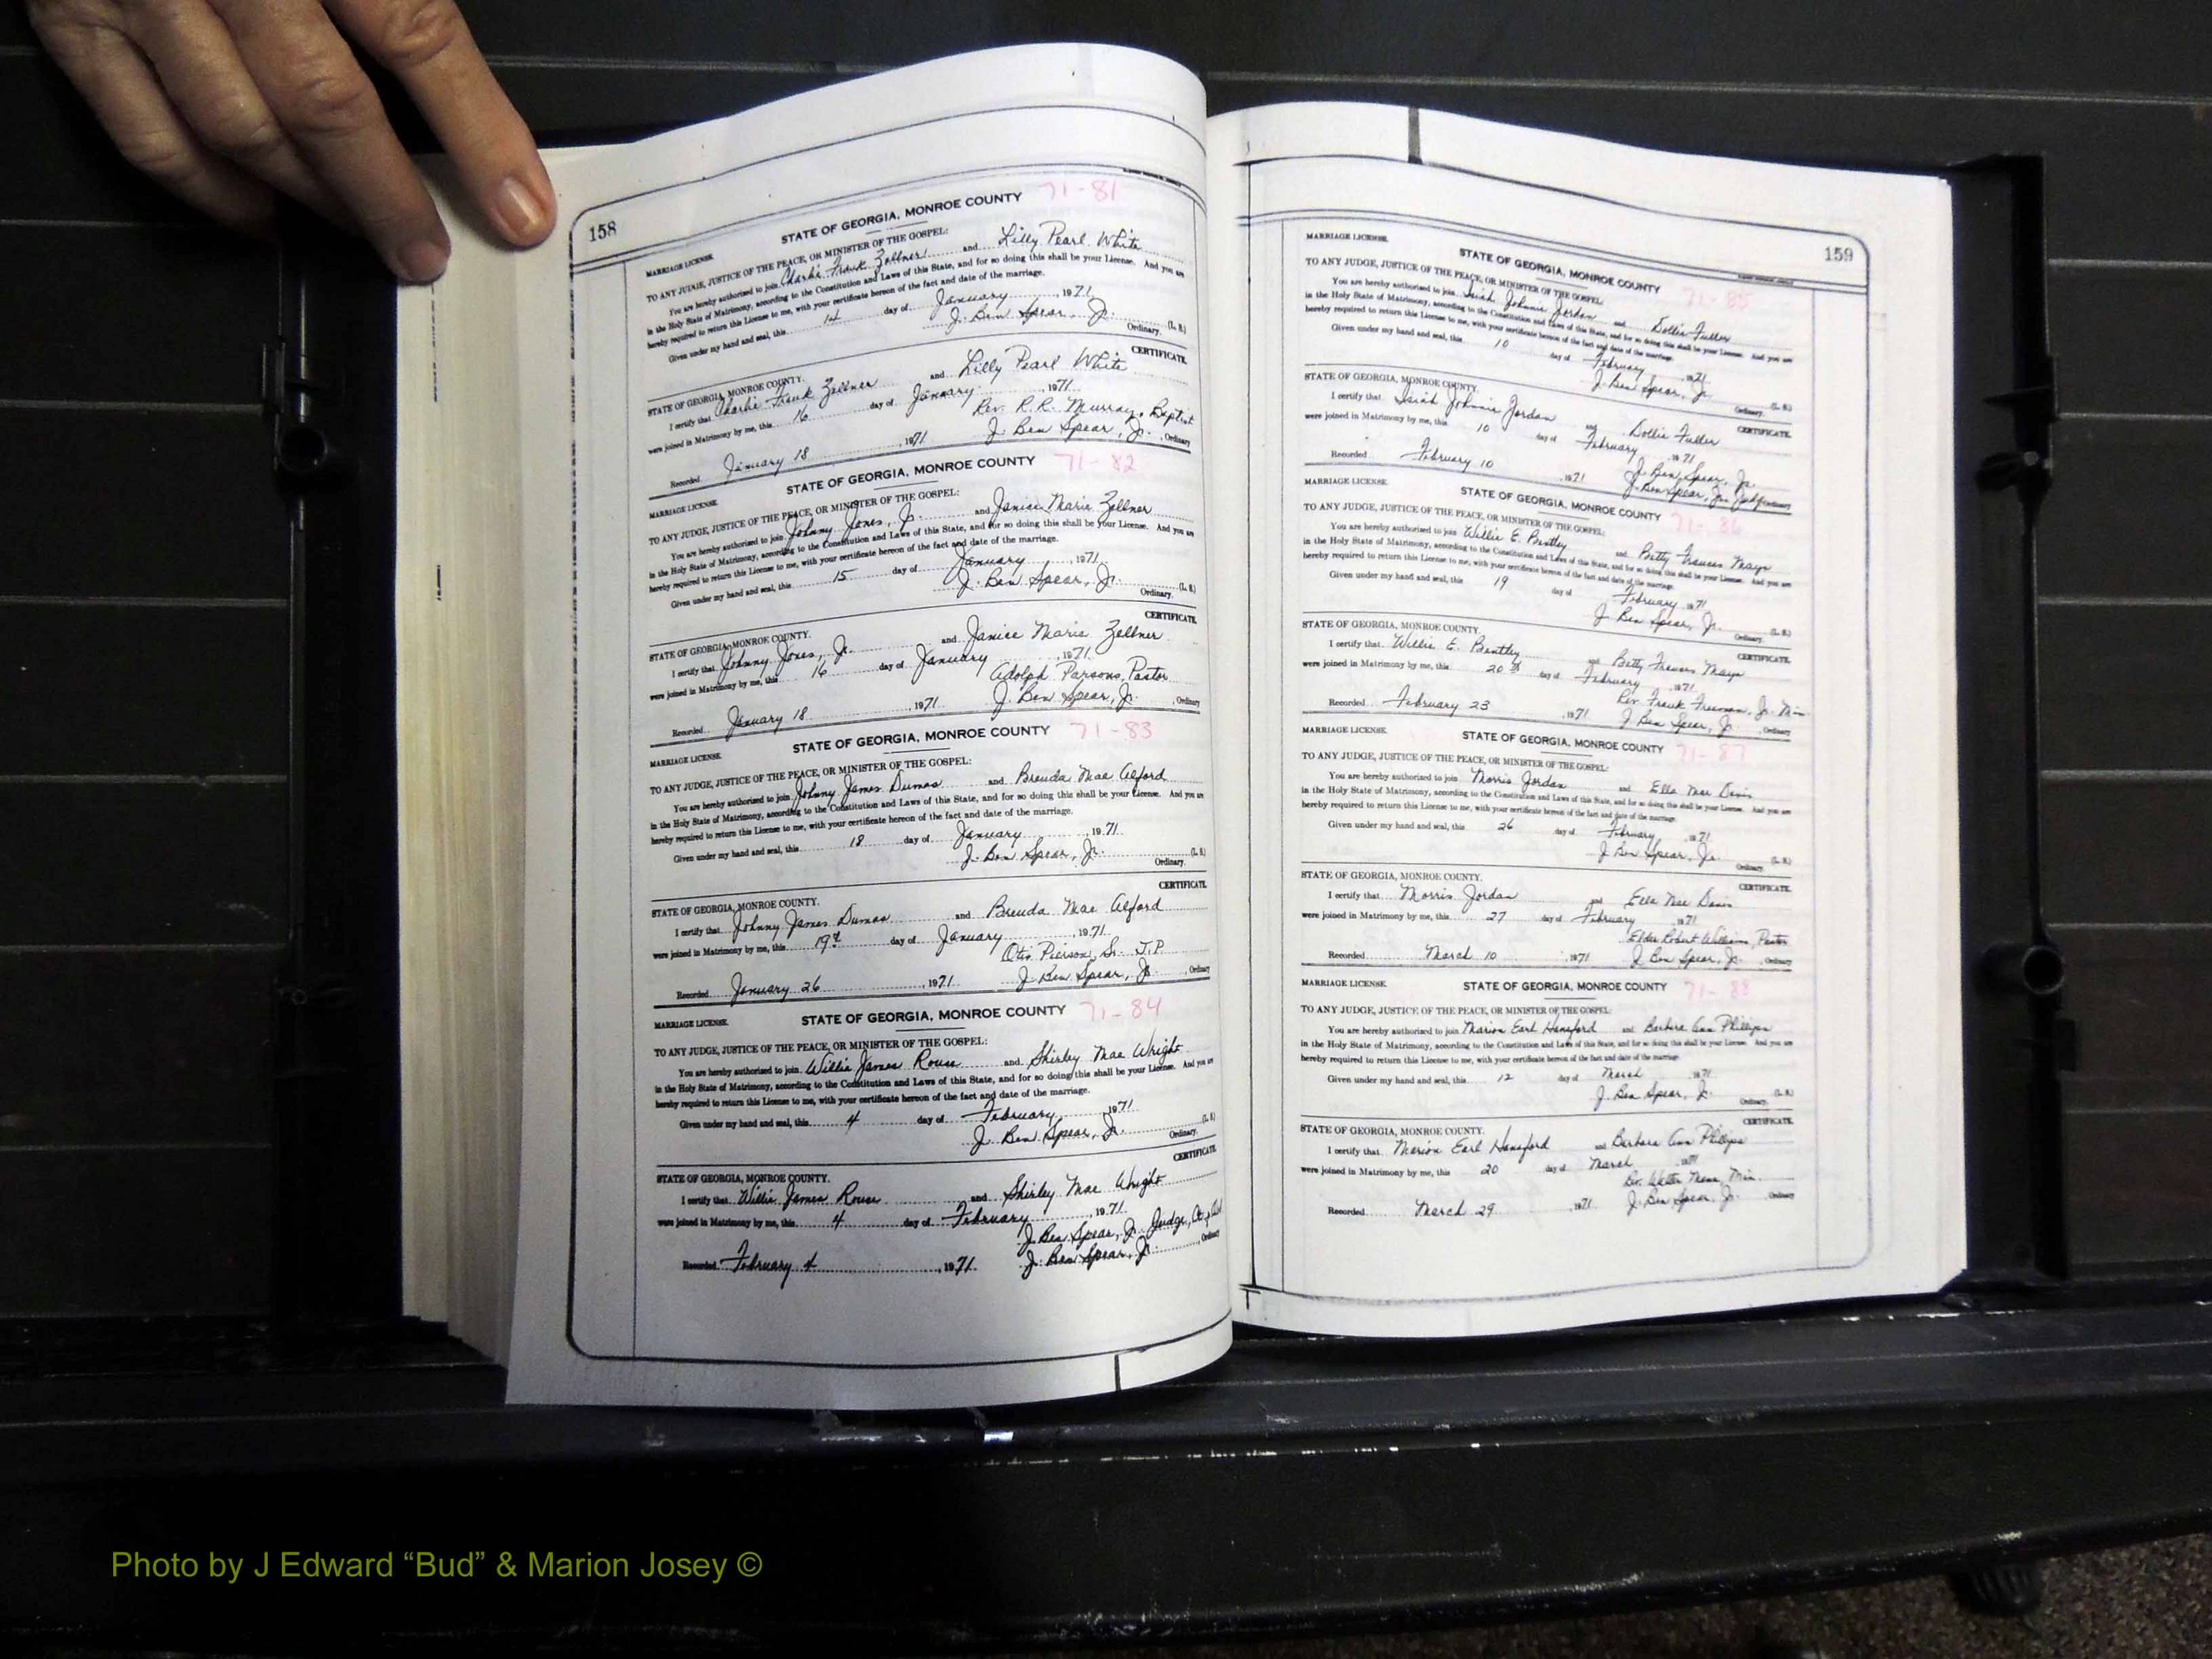 158
STATE OF GEORGIA, MONROE COUNTY 71-81
MARRIAGE LICENSE.
TO ANY JUDGE, JUSTICE OF THE PEACE, OR MINISTER OF THE GOSPEL:
You are hereby authorized to join Charlie Frank Zellner and Lilly Pearl White
in the Holy State of Matrimony, according to the Constitution and Laws of this State, and for so doing this shall be your License. And you are
hereby required to return this License to me, with your certificate hereon of the fact and date of the marriage.
Given under my hand and seal, this 14 day of January, 1971
J. Ben Spear, Jr. (L. S.)
Ordinary.
CERTIFICATE.
STATE OF GEORGIA, MONROE COUNTY.
I certify that Charlie Frank Zellner and Lilly Pearl White
were joined in Matrimony by me, this 16 day of January, 1971
Rev. R.R. Murray, Baptist
Recorded January 18, 1971 J. Ben Spear, Jr., Ordinary
STATE OF GEORGIA, MONROE COUNTY 71-82
MARRIAGE LICENSE.
TO ANY JUDGE, JUSTICE OF THE PEACE, OR MINISTER OF THE GOSPEL:
You are hereby authorized to join Johnny Jones, Jr. and Janice Marie Zellner
in the Holy State of Matrimony, according to the Constitution and Laws of this State, and for so doing this shall be your License. And you are
hereby required to return this License to me, with your certificate hereon of the fact and date of the marriage.
Given under my hand and seal, this 15 day of January, 1971
J. Ben Spear, Jr. (L. S.)
Ordinary.
CERTIFICATE.
STATE OF GEORGIA, MONROE COUNTY.
I certify that Johnny Jones, Jr. and Janice Marie Zellner
were joined in Matrimony by me, this 16 day of January, 1971
Adolph Parsons, Pastor
Recorded January 18, 1971 J. Ben Spear, Jr., Ordinary
STATE OF GEORGIA, MONROE COUNTY 71-83
MARRIAGE LICENSE.
TO ANY JUDGE, JUSTICE OF THE PEACE, OR MINISTER OF THE GOSPEL:
You are hereby authorized to join Johnny James Dumas and Brenda Mae Alford
in the Holy State of Matrimony, according to the Constitution and Laws of this State, and for so doing this shall be your License. And you are
hereby required to return this License to me, with your certificate hereon of the fact and date of the marriage.
Given under my hand and seal, this 18 day of January, 1971
J. Ben Spear, Jr. (L. S.)
Ordinary.
CERTIFICATE.
STATE OF GEORGIA, MONROE COUNTY.
I certify that Johnny James Dumas and Brenda Mae Alford
were joined in Matrimony by me, this 19th day of January, 1971
Otis Pierson, Sr. J.P.
Recorded January 26, 1971 J. Ben Spear, Jr., Ordinary
STATE OF GEORGIA, MONROE COUNTY 71-84
MARRIAGE LICENSE.
TO ANY JUDGE, JUSTICE OF THE PEACE, OR MINISTER OF THE GOSPEL:
You are hereby authorized to join Willie James Rouse and Shirley Mae Wright
in the Holy State of Matrimony, according to the Constitution and Laws of this State, and for so doing this shall be your License. And you are
hereby required to return this License to me, with your certificate hereon of the fact and date of the marriage.
Given under my hand and seal, this 4 day of February, 1971
J. Ben Spear, Jr. (L. S.)
Ordinary.
CERTIFICATE.
STATE OF GEORGIA, MONROE COUNTY.
I certify that Willie James Rouse and Shirley Mae Wright
were joined in Matrimony by me, this 4 day of February, 1971
J. Ben Spear, Jr. Judge,
Recorded February 4, 1971 J. Ben Spear, Jr., Ordinary
159
MARRIAGE LICENSE.
STATE OF GEORGIA, MONROE COUNTY 71-85
TO ANY JUDGE, JUSTICE OF THE PEACE, OR MINISTER OF THE GOSPEL:
You are hereby authorized to join Isiah Johnnie Jordan and Dollie Fuller
in the Holy State of Matrimony, according to the Constitution and Laws of this State, and for so doing this shall be your License. And you are
hereby required to return this License to me, with your certificate hereon of the fact and date of the marriage.
Given under my hand and seal, this 10 day of February, 1971
J. Ben Spear, Jr. (L. S.)
Ordinary.
STATE OF GEORGIA, MONROE COUNTY.
CERTIFICATE.
I certify that Isiah Johnnie Jordan and Dollie Fuller
were joined in Matrimony by me, this 10 day of February, 1971
J. Ben Spear, Jr.
Recorded February 10, 1971 J. Ben Spear, Jr. Judge, Ordinary
MARRIAGE LICENSE.
STATE OF GEORGIA, MONROE COUNTY 71-86
TO ANY JUDGE, JUSTICE OF THE PEACE, OR MINISTER OF THE GOSPEL:
You are hereby authorized to join Willie E. Bentley and Betty Frances Mays
in the Holy State of Matrimony, according to the Constitution and Laws of this State, and for so doing this shall be your License. And you are
hereby required to return this License to me, with your certificate hereon of the fact and date of the marriage.
Given under my hand and seal, this 19 day of February, 1971
J. Ben Spear, Jr. (L. S.)
Ordinary.
STATE OF GEORGIA, MONROE COUNTY.
CERTIFICATE.
I certify that Willie E. Bentley and Betty Frances Mays
were joined in Matrimony by me, this 20th day of February, 1971
Rev. Frank Freeman, Jr. Min
Recorded February 23, 1971 J. Ben Spear, Jr., Ordinary
MARRIAGE LICENSE.
STATE OF GEORGIA, MONROE COUNTY 71-87
TO ANY JUDGE, JUSTICE OF THE PEACE, OR MINISTER OF THE GOSPEL:
You are hereby authorized to join Morris Jordan and Ella Mae Davis
in the Holy State of Matrimony, according to the Constitution and Laws of this State, and for so doing this shall be your License. And you are
hereby required to return this License to me, with your certificate hereon of the fact and date of the marriage.
Given under my hand and seal, this 26 day of February, 1971
J. Ben Spear, Jr. (L. S.)
Ordinary.
STATE OF GEORGIA, MONROE COUNTY.
CERTIFICATE.
I certify that Morris Jordan and Ella Mae Davis
were joined in Matrimony by me, this 27 day of February, 1971
Elder Robert Williams, Pastor
Recorded March 10, 1971 J. Ben Spear, Jr., Ordinary
MARRIAGE LICENSE.
STATE OF GEORGIA, MONROE COUNTY 71-88
TO ANY JUDGE, JUSTICE OF THE PEACE, OR MINISTER OF THE GOSPEL:
You are hereby authorized to join Marion Earl Hansford and Barbara Ann Phillips
in the Holy State of Matrimony, according to the Constitution and Laws of this State, and for so doing this shall be your License. And you are
hereby required to return this License to me, with your certificate hereon of the fact and date of the marriage.
Given under my hand and seal, this 12 day of March, 1971
J. Ben Spear, Jr. (L. S.)
Ordinary.
CERTIFICATE.
STATE OF GEORGIA, MONROE COUNTY.
I certify that Marion Earl Hansford and Barbara Ann Phillips
were joined in Matrimony by me, this 20 day of March, 1971
Min.
Recorded March 29, 1971 J. Ben Spear, Jr., Ordinary
Photo by J Edward “Bud” & Marion Josey ©